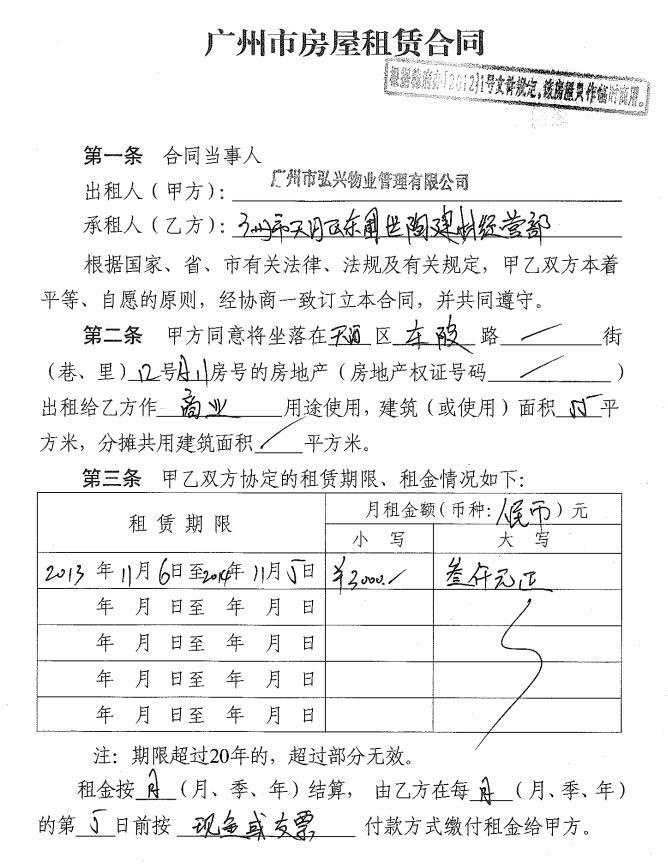 广州市房屋租赁合同
根据穗府办[2012]1号文件规定,该房屋只作临时商用。
第一条 合同当事人
出租人(甲方):广州市弘兴物业管理有限公司
承租人(乙方):广州市天河区东圃世陶建材经营部
根据国家、省、市有关法律、法规及有关规定,甲乙双方本着
平等、自愿的原则,经协商一致订立本合同,并共同遵守。
第二条 甲方同意将坐落在天河区东陂路/街
(巷、里)12号A11房号的房地产(房地产权证号码/)
出租给乙方作商业用途使用,建筑(或使用)面积55平
方米,分摊共用建筑面积/平方米。
第三条 甲乙双方协定的租赁期限、租金情况如下:
租赁期限 月租金额(币种:人民币)元
小写 大写
2013年11月6日至2014年11月5日 ¥3000./ 叁仟元正
年 月 日至 年 月 日
年 月 日至 年 月 日
年 月 日至 年 月 日
年 月 日至 年 月 日
注:期限超过20年的,超过部分无效。
租金按月(月、季、年)结算,由乙方在每月(月、季、年)
的第5日前按现金或支票付款方式缴付租金给甲方。